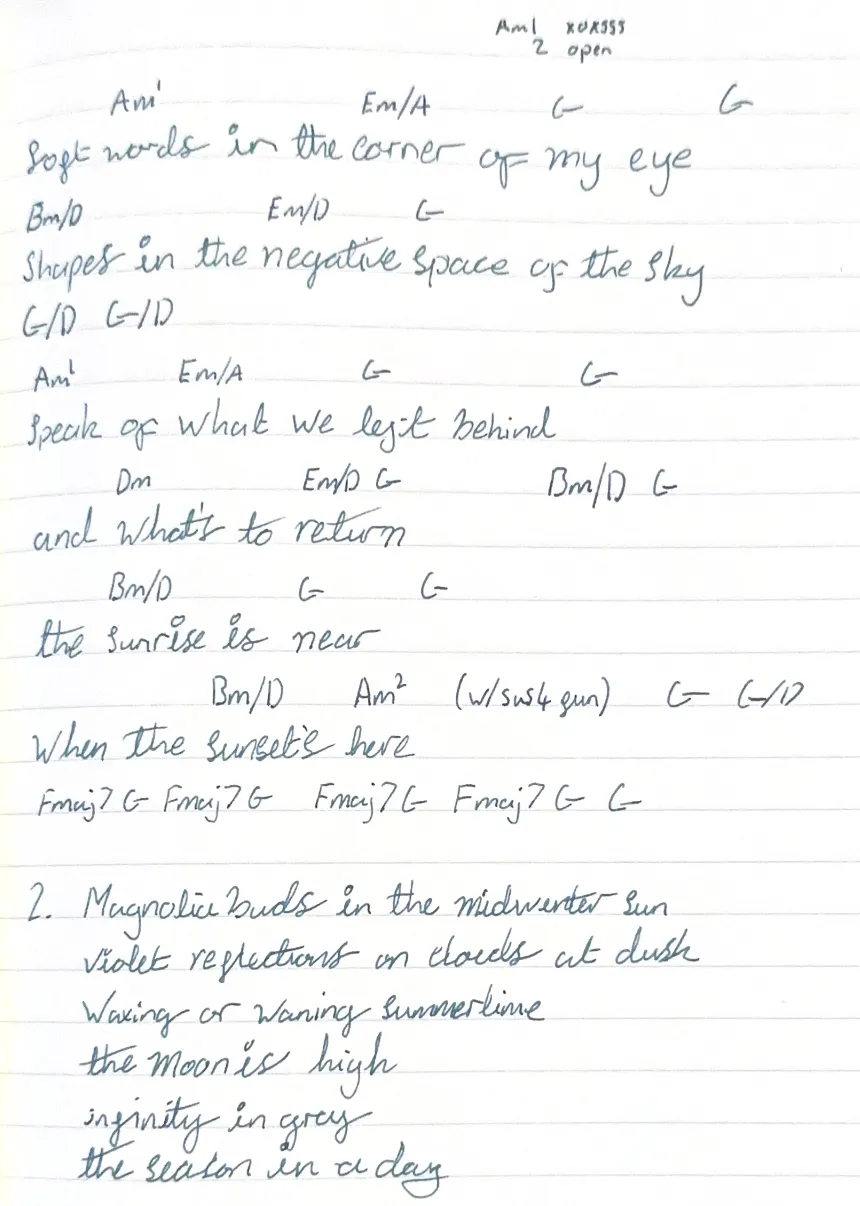 Am1 x0x555
2 open
Am¹ Em/A G G
Soft words in the corner of my eye
Bm/D Em/D G
Shapes in the negative space of the sky
G/D G/D
Am¹ Em/A G G
Speak of what we left behind
Dm Em/D G Bm/D G
and what's to return
Bm/D G G
the sunrise is near
Bm/D Am² (w/sus4 fun) G G/D
When the sunset's here
Fmaj7 G Fmaj7 G Fmaj7 G Fmaj7 G G
2. Magnolia buds in the midwinter sun
violet reflections on clouds at dusk
Waxing or waning summertime
the moon is high
infinity in grey
the season in a day